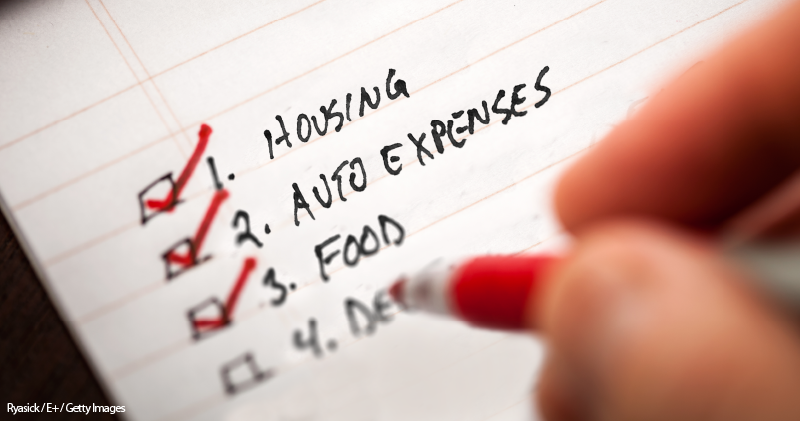 1. HOUSING
2. AUTO EXPENSES
3. FOOD
4.
Ryasick / E+ / Getty Images